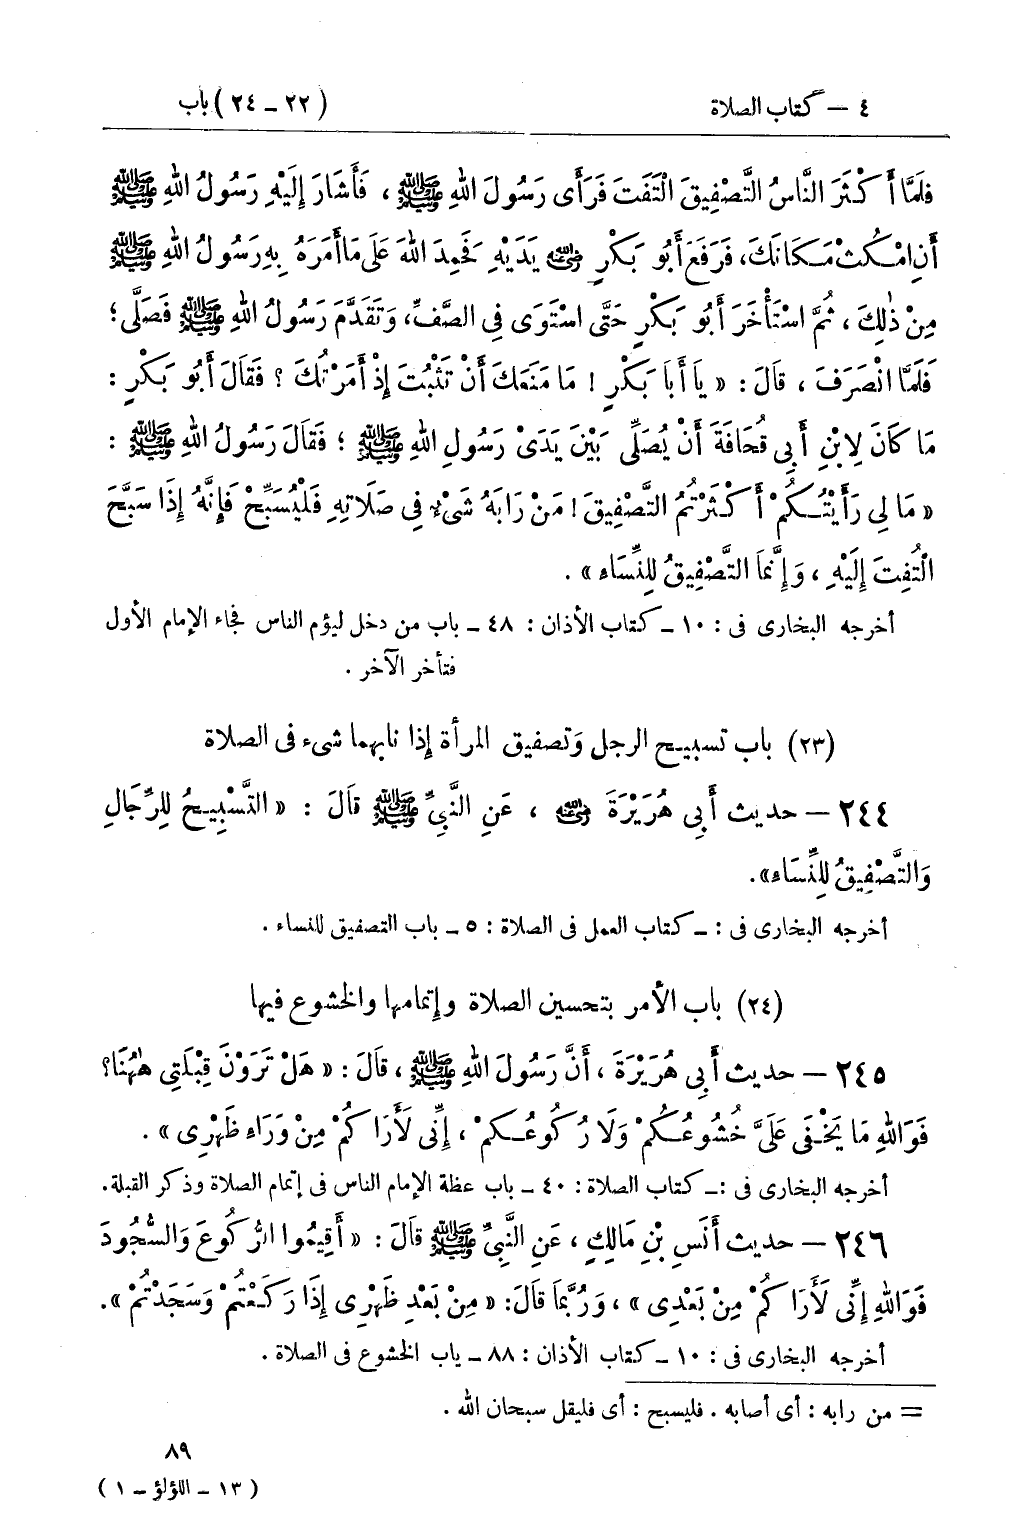 ٤ – كتاب الصلاة (٢٢ – ٢٤) باب
فَلَمَّا أَكْثَرَ النَّاسُ التَّصْفِيقَ الْتَفَتَ فَرَأَى رَسُولَ اللهِ ﷺ ، فَأَشَارَ إِلَيْهِ رَسُولُ اللهِ ﷺ
أَنِ امْكُثْ مَكَانَكَ، فَرَفَعَ أَبُو بَكْرٍ رضي الله عنه يَدَيْهِ فَحَمِدَ اللهَ عَلَى مَا أَمَرَهُ بِهِ رَسُولُ اللهِ ﷺ
مِنْ ذٰلِكَ ، ثُمَّ اسْتَأْخَرَ أَبُو بَكْرٍ حَتَّى اسْتَوَى فِي الصَّفِّ، وَتَقَدَّمَ رَسُولُ اللهِ ﷺ فَصَلَّى؛
فَلَمَّا انْصَرَفَ ، قَالَ : « يَا أَبَا بَكْرٍ ! مَا مَنَعَكَ أَنْ تَثْبُتَ إِذْ أَمَرْتُكَ ؟ فَقَالَ أَبُو بَكْرٍ :
مَا كَانَ لِابْنِ أَبِي قُحَافَةَ أَنْ يُصَلِّيَ بَيْنَ يَدَىْ رَسُولِ اللهِ ﷺ ؛ فَقَالَ رَسُولُ اللهِ ﷺ :
« مَا لِي رَأَيْتُكُمْ أَكْثَرْتُمُ التَّصْفِيقَ ! مَنْ رَابَهُ شَىْءٌ فِي صَلَاتِهِ فَلْيُسَبِّحْ فَإِنَّهُ إِذَا سَبَّحَ
الْتُفِتَ إِلَيْهِ ، وَإِنَّمَا التَّصْفِيقُ لِلنِّسَاءِ » .
أخرجه البخارى فى : ١٠ – كتاب الأذان : ٤٨ – باب من دخل ليؤم الناس فجاء الإمام الأول
فتأخر الآخر .
(٢٣) باب تسبيح الرجل وتصفيق المرأة إذا نابهما شىء فى الصلاة
٢٤٤ – حديث أَبِي هُرَيْرَةَ رضي الله عنه ، عَنِ النَّبِيِّ ﷺ قَالَ : « التَّسْبِيحُ لِلرِّجَالِ
وَالتَّصْفِيقُ لِلنِّسَاءِ».
أخرجه البخارى فى : – كتاب العمل فى الصلاة : ٥ – باب التصفيق للنساء .
(٢٤) باب الأمر بتحسين الصلاة وإتمامها والخشوع فيها
٢٤٥ – حديث أَبِي هُرَيْرَةَ ، أَنَّ رَسُولَ اللهِ ﷺ ، قَالَ : « هَلْ تَرَوْنَ قِبْلَتِي هٰهُنَا؟
فَوَاللهِ مَا يَخْفَى عَلَىَّ خُشُوعُكُمْ وَلَا رُكُوعُكُمْ ، إِنِّي لَأَرَاكُمْ مِنْ وَرَاءِ ظَهْرِى » .
أخرجه البخارى فى :– كتاب الصلاة : ٤٠ – باب عظة الإمام الناس فى إتمام الصلاة وذكر القبلة.
٢٤٦ – حديث أَنَسِ بْنِ مَالِكٍ ، عَنِ النَّبِيِّ ﷺ قَالَ : « أَقِيمُوا الرُّكُوعَ وَالسُّجُودَ
فَوَاللهِ إِنِّي لَأَرَاكُمْ مِنْ بَعْدِي » ، وَرُبَّمَا قَالَ: « مِنْ بَعْدِ ظَهْرِى إِذَا رَكَعْتُمْ وَسَجَدْتُمْ ».
أخرجه البخارى فى : ١٠ – كتاب الأذان : ٨٨ – باب الخشوع فى الصلاة .
= من رابه : أى أصابه . فليسبح : أى فليقل سبحان الله .
٨٩
( ١٣ – اللؤلؤ – ١ )